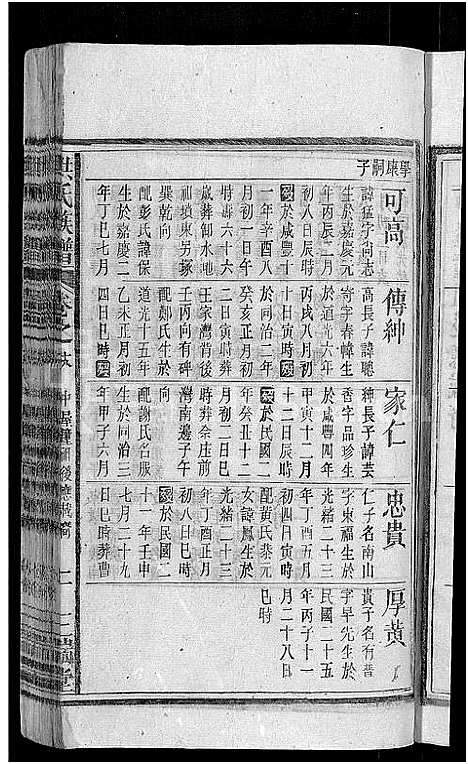 學康嗣子
可高
諱猛字尚志
生於嘉慶元
年丙辰二月
初八日辰時
歿於咸豐十
一年辛酉八
月初一日辰
時壽六十六
歲葬卸水地
福墳東另塚
巽乾向
配彭氏諱保
生於嘉慶二
年丁巳七月
傳紳
高長子諱聰
寄字春幃生
於道光六年
丙戌八月初
十日寅時歿
於同治二年
癸亥正月初
六日寅時葬
王家灣背後
壬丙向有碑
配鄭氏生於
道光十五年
乙未正月初
四日巳時歿
家仁
紳長子諱芸
香字品珍生
於咸豐四年
甲寅十二月
十二日辰時
歿於民國二
年癸丑十二
月初一日巳
時葬余庄前
灣南邊子午
向
配謝氏名服
生於同治三
年甲子六月
忠貴
仁子名南山
字東福生於
光緒二十三
年丁酉五月
初四日寅時
配黃氏恭元
女諱鳳生於
光緒二十三
年丁酉正月
初八日巳時
歿於民國二
十一年壬申
七月二十九
日巳時葬曹
厚黃
貴子名有普
字早先生於
民國二十五
年丙子十一
月二十八日
巳時
洪氏族譜 卷之